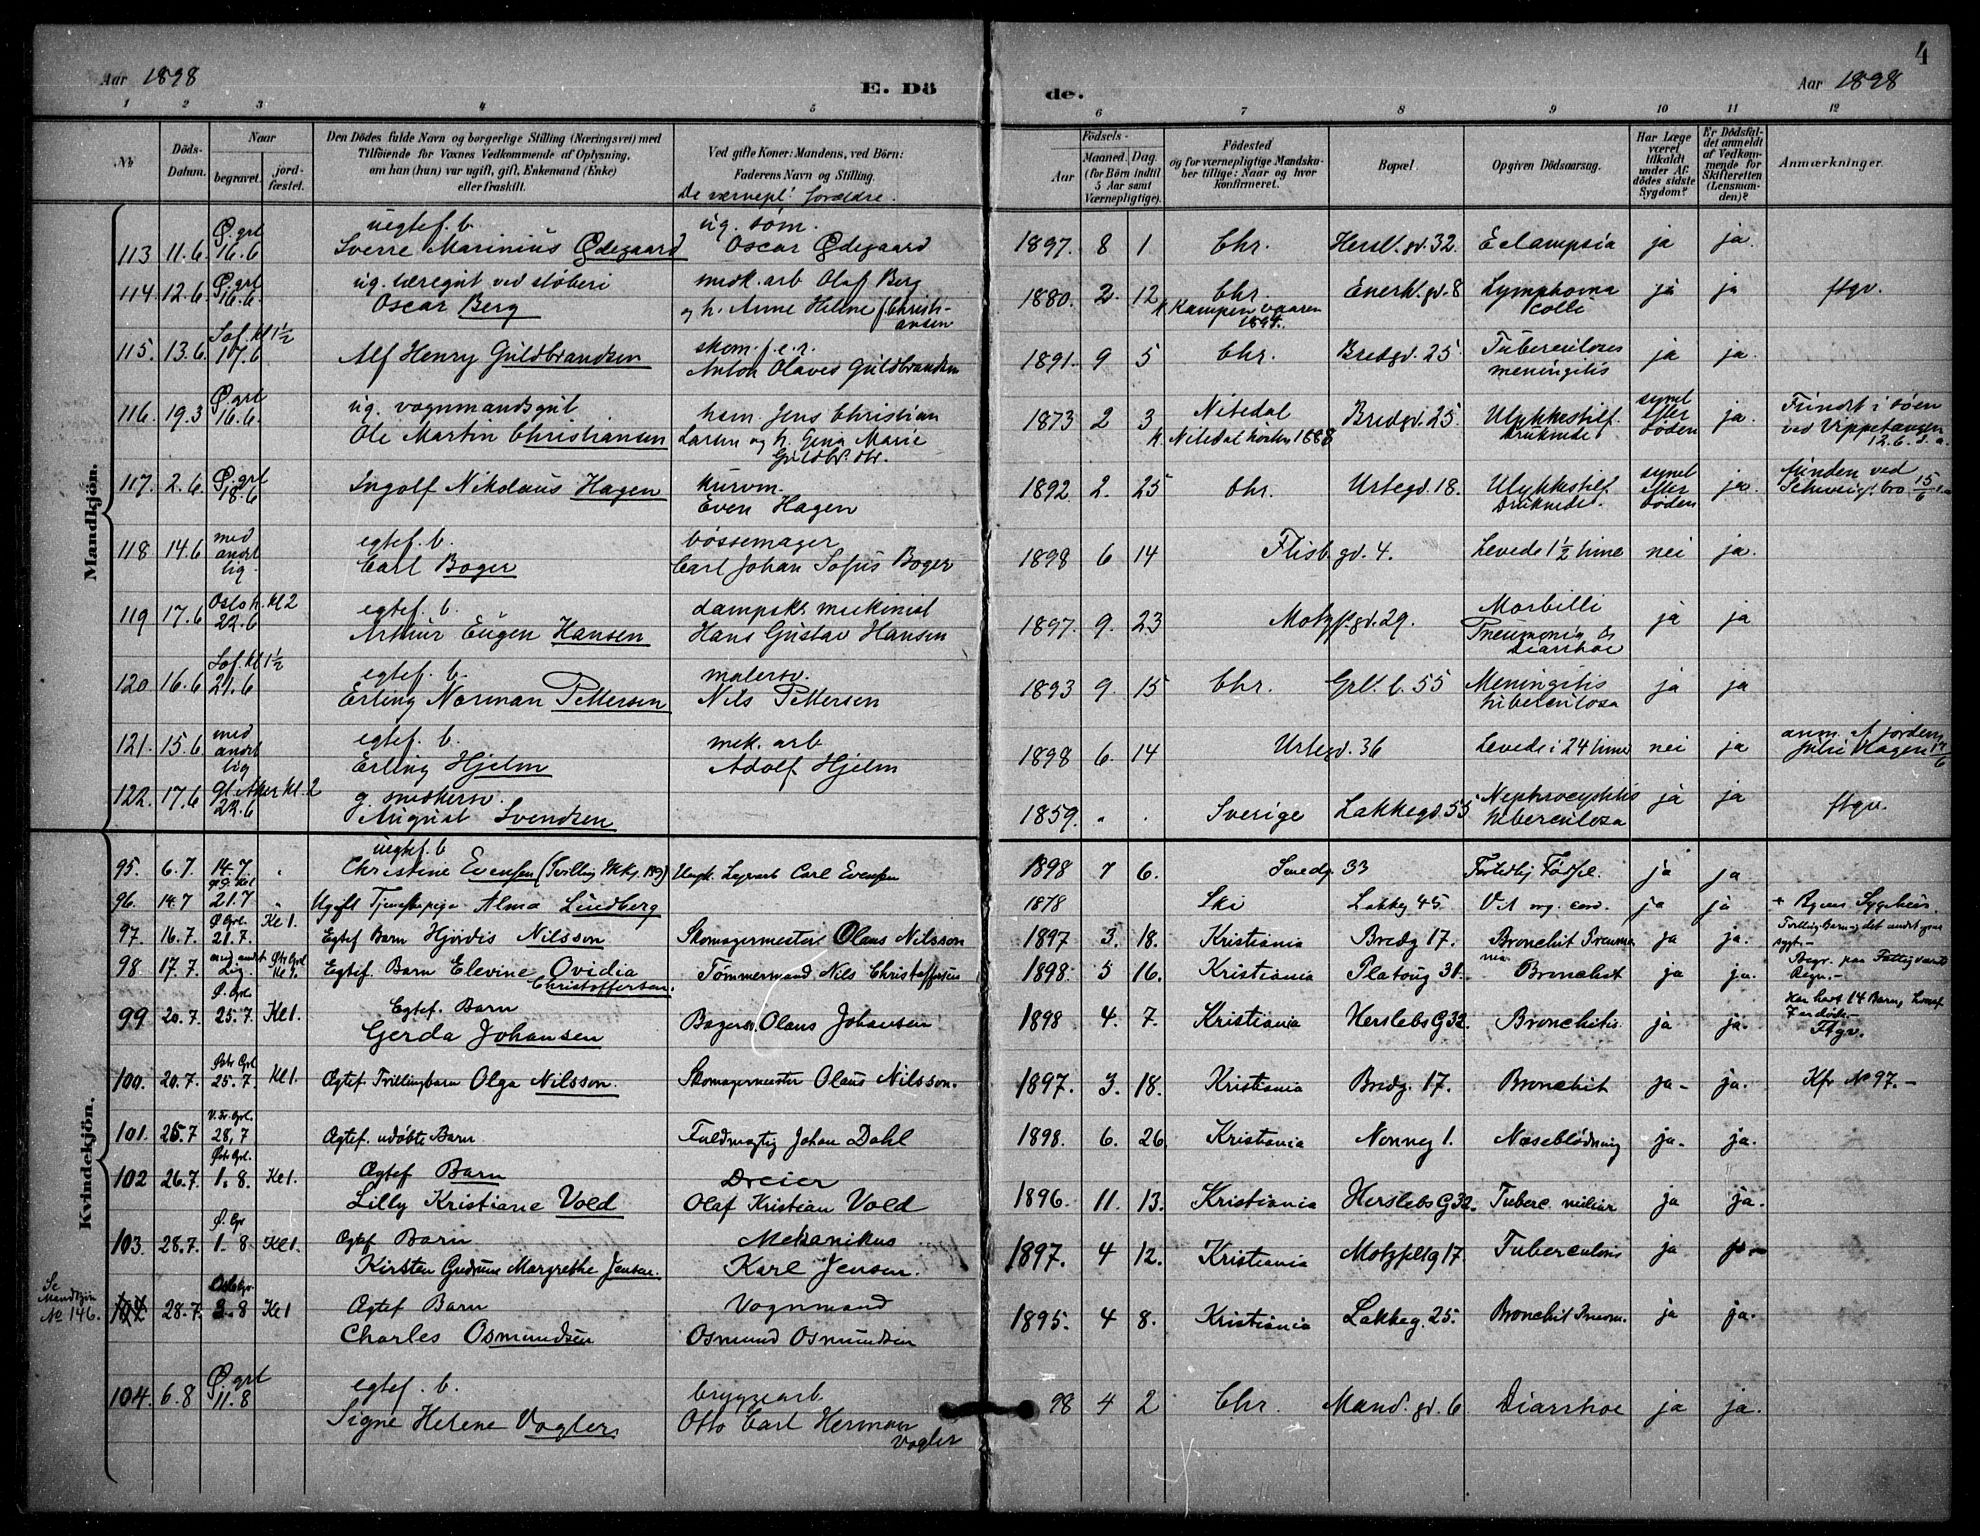 4
Aar 1898 E. Dö de. Aar 1898
1 2 3 4 5 6 7 8 9 10 11 12
№ Döds-Datum. Naar begravet. jord-fæstet. Den Dödes fulde Navn og borgerlige Stilling (Næringsvei) med Tilföiende for Voxnes Vedkommende af Oplysning, om han (hun) var ugift, gift, Enkemand (Enke) eller fraskilt. Ved gifte Koner: Mandens, ved Börn: Faderens Navn og Stilling. De værnepl. forældre. Födsels- Aar Maaned. Dag. (for Börn indtil 5 Aar samt Værnepligtige). Födested og for værnepligtige Mandskaber tillige: Naar og hvor konfirmeret. Bopæl. Opgiven Dödsaarsag. Har Læge været tilkaldt under Afdödes sidste Sygdom? Er Dödsfaldet anmeldt af Vedkommende for Skifteretten (Lensmanden)? Anmærkninger.
Mandkjön.
113 11.6 Ø. grl 16.6 uegtef. b. Sverre Marinius Ødegaard ug. søm. Oscar Ødegaard 1897. 8 1 Chr. Hersl. gd. 32. Eclampsia ja ja.
114. 12.6 Ø. grl 16.6. ug. læregut ved støberi Oscar Berg mek. arb Olaf Berg og h. Anne Helene f. Christiansen 1880. 2. 12 Chr. k. Kampen vaaren 1894. Enerh. gd. 8 Lymphoma colli ja ja ftgv.
115. 13.6 Sof. kl 1½ 17.6 Alf Henry Guldbrandsen skom. f.e.r. Anton Olaves Guldbrandsen 1891. 9 5 Chr. Bredgd. 25 Tuberculoses meningitis ja ja.
116. 19.3 Ø. grl 16.6. ug. vognmandsgut Ole Martin Christiansen hem. Jens Christian Larsen og h. Gina Marie Guldbr. dtr. 1873 2 3 Nitedal k. Nitedal høsten 1888 Bredgd. 25. Ulykkestilf. druknede synet efter døden ja. Fundet i søen ved Vippetangen 12.6. d. a.
117. 2.6 Ø. grl 18.6 Ingolf Nikolaus Hagen kurvm. Even Hagen 1892 2. 25 Chr. Urtegd. 18. Ulykkestilf. druknede. synet efter døden ja. funden ved Schweig. bro 15/6 d.a.
118 14.6 med andet lig. egtef. b. Carl Boger bøssemager Carl Johan Sofus Boger 1898 6 14 Flisb. gd. 4. Levede 1½ time nei ja.
119 17.6 Oslo k. kl 2 22.6 egtef. b. Arthur Eugen Hansen dampsk. maskinist Hans Gustav Hansen 1897. 9. 23 Motzf. gd. 29. Morbilli Pneumonia & diarrhoe ja ja
120 16.6 Sof. kl 1½ 21.6 egtef. b. Erling Norman Pettersen malersv. Nils Pettersen 1893 9. 15 Chr. Grl. l. 55 Meningitis tuberculosa ja ja
121. 15.6 med andet lig egtef. b. Erling Hjelm mek. arb Adolf Hjelm 1898 6. 14 Urtegd. 36 Levede i 24 time nei ja anm. af jordem. Julie Hagen 17/6
122. 17.6 Gl. Aker kl. 2 22.6 g. snedkersv. August Svendsen 1859. " . Sverige Lakkegd. 55 Nephrocystitis tuberculosa ja ja ftgv.
Kvindekjön.
95. 6.7 14.7. " uegtef. b Christine Evensen (Tvilling Mkj.) Ungk. Carl Evensen 1898 7 6. 33 Fortidlig Fødsel. ja ja.
96. 14.7 21.7 " Ugift Tjenestepige Alma Lindberg 1878 Ski Lakkeg 45. V. org. cord. ja ja + Byens Sygehus.
97. 16.7. Ø Grl. 21.7. Kl 1. Egtef Barn Hjørdis Nilsson Skomagermester Olaus Nilsson 1897 3. 18. Kristiania Bredg 17. Bronchit Pneumonia ja ja. Tvilling-Barn,
98. 17.7. med andet Lig. Østr Grl Kl 1. Egtef. Barn Elevine Ovidia Christoffersen. Tømmermand Nils Christoffersen 1898. 5 16. Kristiania Platoug 31. Bronchit ja ja. Begr. paa Fattigvæsents Regn.-
99 20.7. Ø. Grl 25.7. Kl 1. Egtef. Barn Gerda Johansen Bagersv. Olaus Johansen 1898 4. 7. Kristiania Herslebs G 32. Bronchitis. ja ja. Har havt 14 Barn, hvoraf 7 er døde.- Ftgv.
100. 20.7. Østr Grl 25.7. Kl 1. Ægtef. Tvillingbarn Olga Nilsson. Skomagermester Olaus Nilsson. 1897. 3. 18. Kristiania Bredg. 17. Bronchit ja- ja. Kfr No 97.-
101. 25.7 V. Fr. Grl. 28.7 Ægtef. udøbte Barn Fuldmægtig Johan Dahl 1898. 6. 26. Kristiania Nonneg 1. Næseblødning ja- ja.
102 26.7. Østr Grl. 1.8. Kl 1. Ægtef Barn Lilly Kristiane Vold Dreier Olaf Kristian Vold 1896. 11. 13. Kristiania Herslebs G 32. Tuberc. miliar ja ja.
103. 28.7. Ø. Gr 1.8. Kl 1. Ægtef Barn Kirsten Gudrun Margrethe Jensen. Mekanikus Karl Jensen. 1897. 4 12. Kristiania Motzfeltsg 17. Tuberculosis ja ja-
Se Mandkjön No 146. 104 28.7. Oslo Gr. 2.8 Kl 1 Ægtef Barn Charles Osmundsen Vognmand Osmund Osmundsen 1895. 4 8. Kristiania Lakkeg. 25. Bronchit Pneum. ja ja.
104. 6.8 Ø grl 11.8 egtef. b. Signe Helene Vogler bryggearb. Otto Carl Herman Vogler 98 4 2 Chr. Mand. gd. 6 Diarrhoe ja ja.